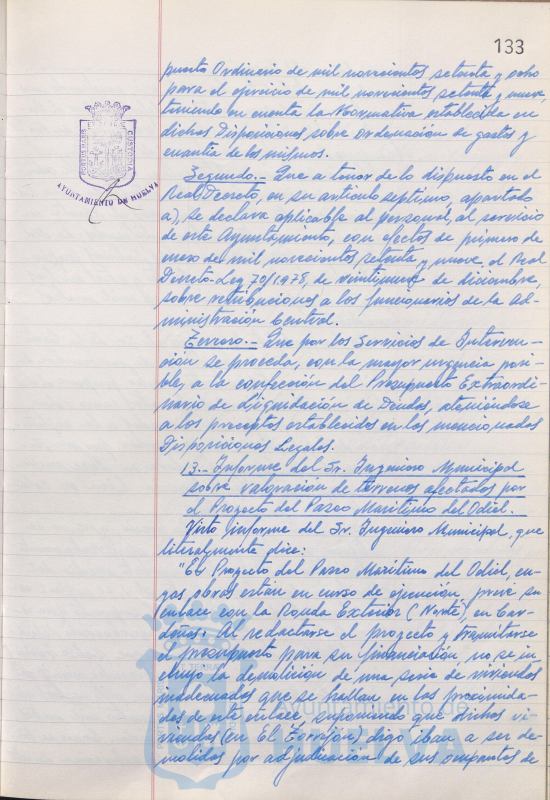 133
puesto Ordinario de mil novecientos setenta y ocho
para el ejercicio de mil novecientos setenta y nueve,
teniendo en cuenta la Normativa establecida en
dichas Disposiciones sobre ordenación de gastos y
cuantía de los mismos.
Segundo.- Que a tenor de lo dispuesto en el
Real Decreto, en su artículo septimo, apartado
a), se declara aplicable al personal, al servicio
de este Ayuntamiento, con efectos de primero de
enero de mil novecientos setenta y nueve, el Real
Decreto-Ley 70/1978, de veintinueve de diciembre,
sobre retribuciones a los funcionarios de la Ad-
ministración Central.
Tercero.- Que por los Servicios de Interven-
ción se proceda, con la mayor urgencia posi-
ble, a la confección del Presupuesto Extraordi-
nario de Liquidación de Deudas, ateniéndose
a los preceptos establecidos en las mencionadas
Disposiciones Legales.
13.- Informe del Sr. Ingeniero Municipal
sobre valoración de terrenos afectados por
el Proyecto del Paseo Marítimo del Odiel.
Visto informe del Sr. Ingeniero Municipal, que
literalmente dice:
"El Proyecto del Paseo Marítimo del Odiel, cu-
yas obras están en curso de ejecución, preve su
enlace con la Ronda Exterior (Norte), en Car-
deñas. Al redactarse el proyecto y tramitarse
el presupuesto para su financiación no se in-
cluyo la demolición de una serie de viviendas
inadecuadas que se hallan en las proximida-
des de este enlace, suponiendo que dichas vi-
viendas (en El Torrejón) digo iban a ser de-
molidas por adjudicación de sus ocupantes de
PORTUS MARIS
CUSTODIA
AYUNTAMIENTO DE HUELVA
Ayuntamiento de
HUELVA